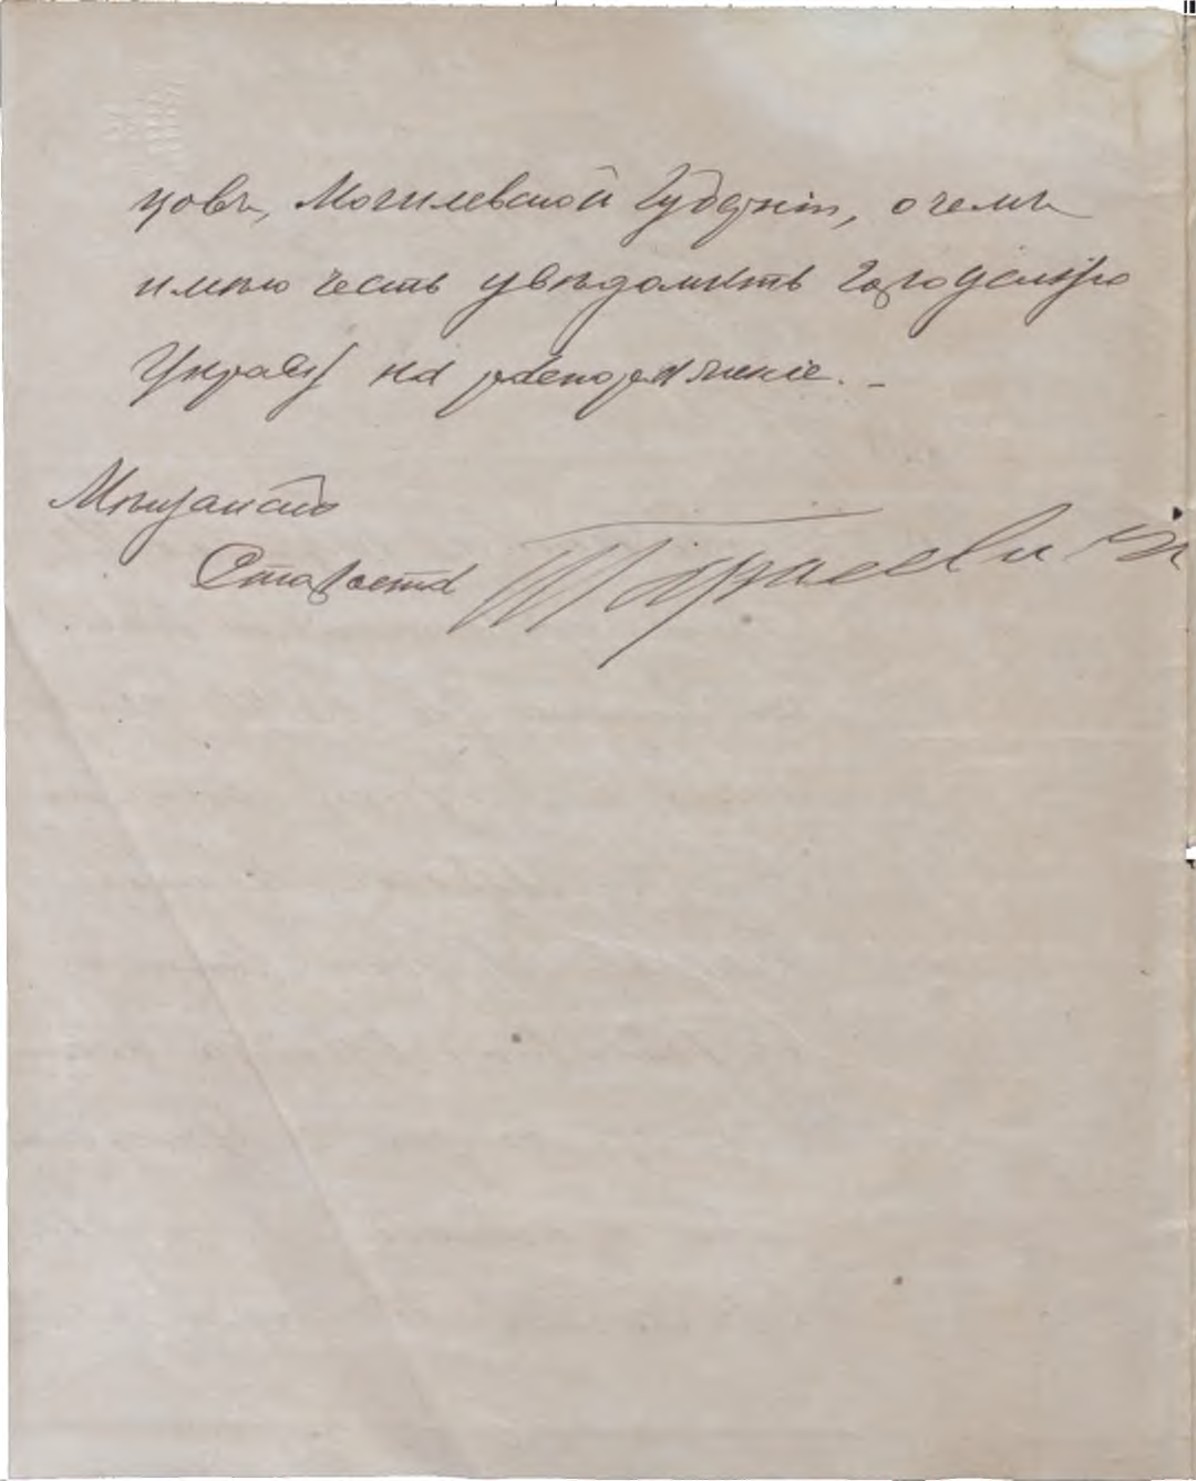 цовъ, Могилевской Губерніи, о чемъ
имѣю честь увѣдомить Городскую
Управу на распоряженіе. –
Мѣщанскій
Староста